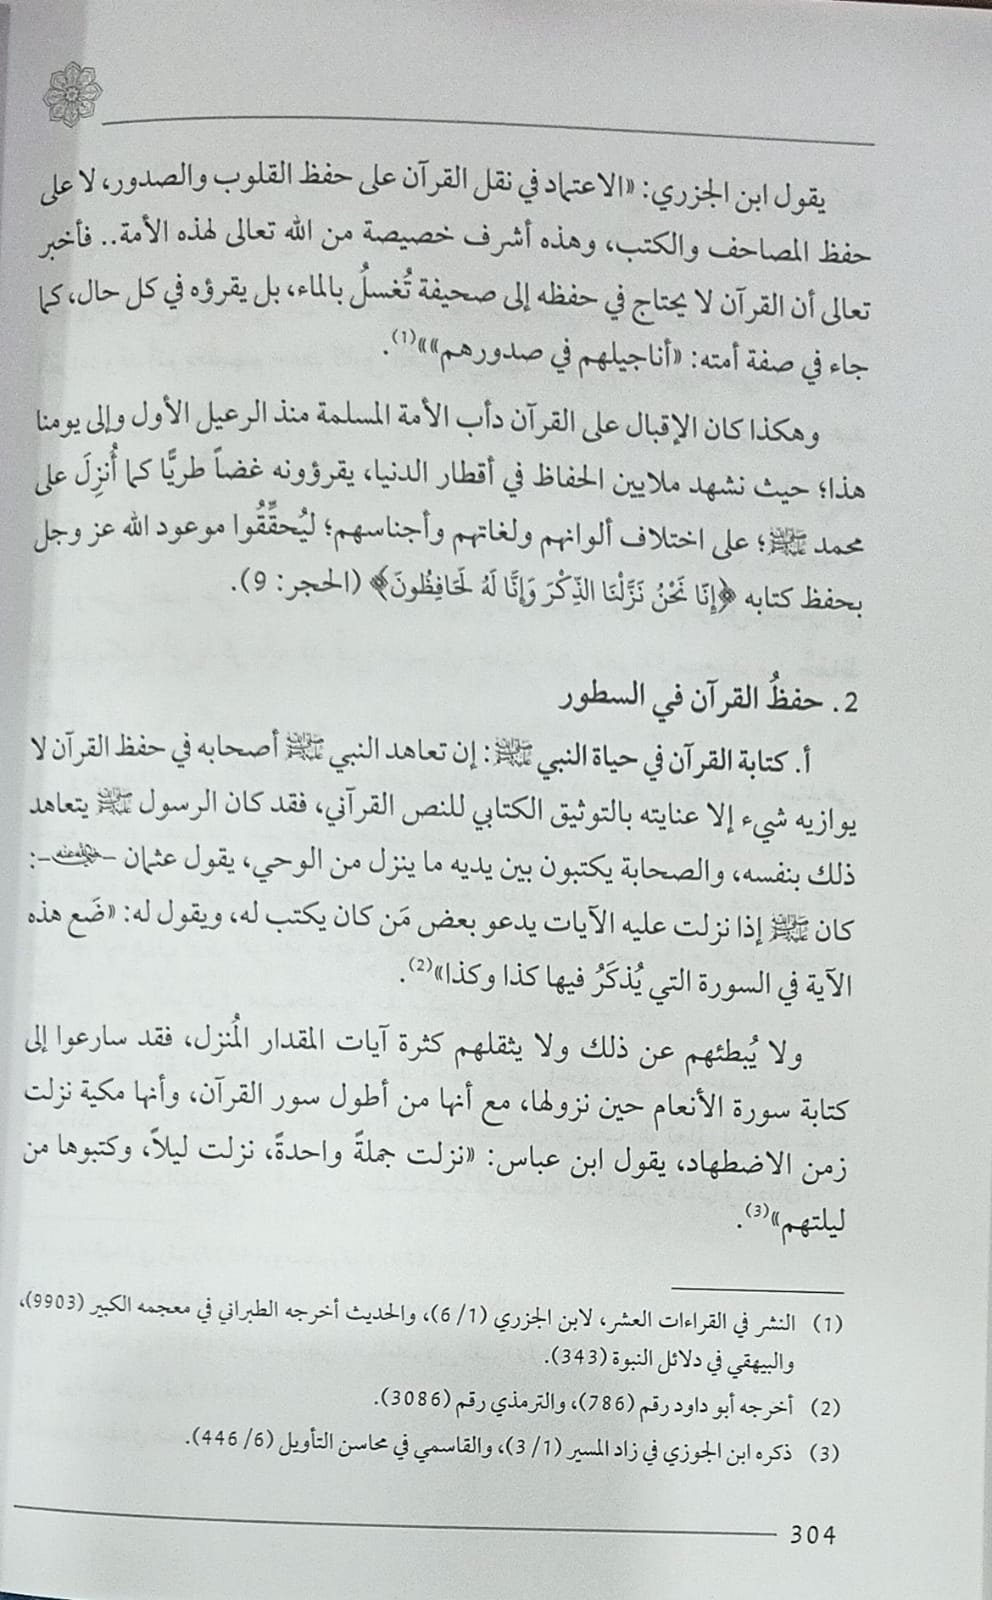 يقول ابن الجزري: «الاعتماد في نقل القرآن على حفظ القلوب والصدور، لا على
حفظ المصاحف والكتب، وهذه أشرف خصيصة من الله تعالى لهذه الأمة.. فأخبر
تعالى أن القرآن لا يحتاج في حفظه إلى صحيفة تُغسلُ بالماء، بل يقرؤه في كل حال، كما
جاء في صفة أمته: «أناجيلهم في صدورهم»»(1).
وهكذا كان الإقبال على القرآن دأب الأمة المسلمة منذ الرعيل الأول وإلى يومنا
هذا؛ حيث نشهد ملايين الحفاظ في أقطار الدنيا، يقرؤونه غضاً طريًّا كما أُنزِلَ على
محمد ﷺ؛ على اختلاف ألوانهم ولغاتهم وأجناسهم؛ ليُحقِّقُوا موعود الله عز وجل
بحفظ كتابه ﴿إِنَّا نَحْنُ نَزَّلْنَا الذِّكْرَ وَإِنَّا لَهُ لَحَافِظُونَ﴾ (الحجر: 9).
2. حفظُ القرآن في السطور
أ. كتابة القرآن في حياة النبي ﷺ: إن تعاهد النبي ﷺ أصحابه في حفظ القرآن لا
يوازيه شيء إلا عنايته بالتوثيق الكتابي للنص القرآني، فقد كان الرسول ﷺ يتعاهد
ذلك بنفسه، والصحابة يكتبون بين يديه ما ينزل من الوحي، يقول عثمان -رضي الله عنه-:
كان ﷺ إذا نزلت عليه الآيات يدعو بعض مَن كان يكتب له، ويقول له: «ضَع هذه
الآية في السورة التي يُذكَرُ فيها كذا وكذا»(2).
ولا يُبطئهم عن ذلك ولا يثقلهم كثرة آيات المقدار المُنزل، فقد سارعوا إلى
كتابة سورة الأنعام حين نزولها، مع أنها من أطول سور القرآن، وأنها مكية نزلت
زمن الاضطهاد، يقول ابن عباس: «نزلت جملةً واحدةً، نزلت ليلاً، وكتبوها من
ليلتهم»(3).
(1) النشر في القراءات العشر، لابن الجزري (6/1)، والحديث أخرجه الطبراني في معجمه الكبير (9903)،
والبيهقي في دلائل النبوة (343).
(2) أخرجه أبو داود رقم (786)، والترمذي رقم (3086).
(3) ذكره ابن الجوزي في زاد المسير (3/1)، والقاسمي في محاسن التأويل (446/6).
304